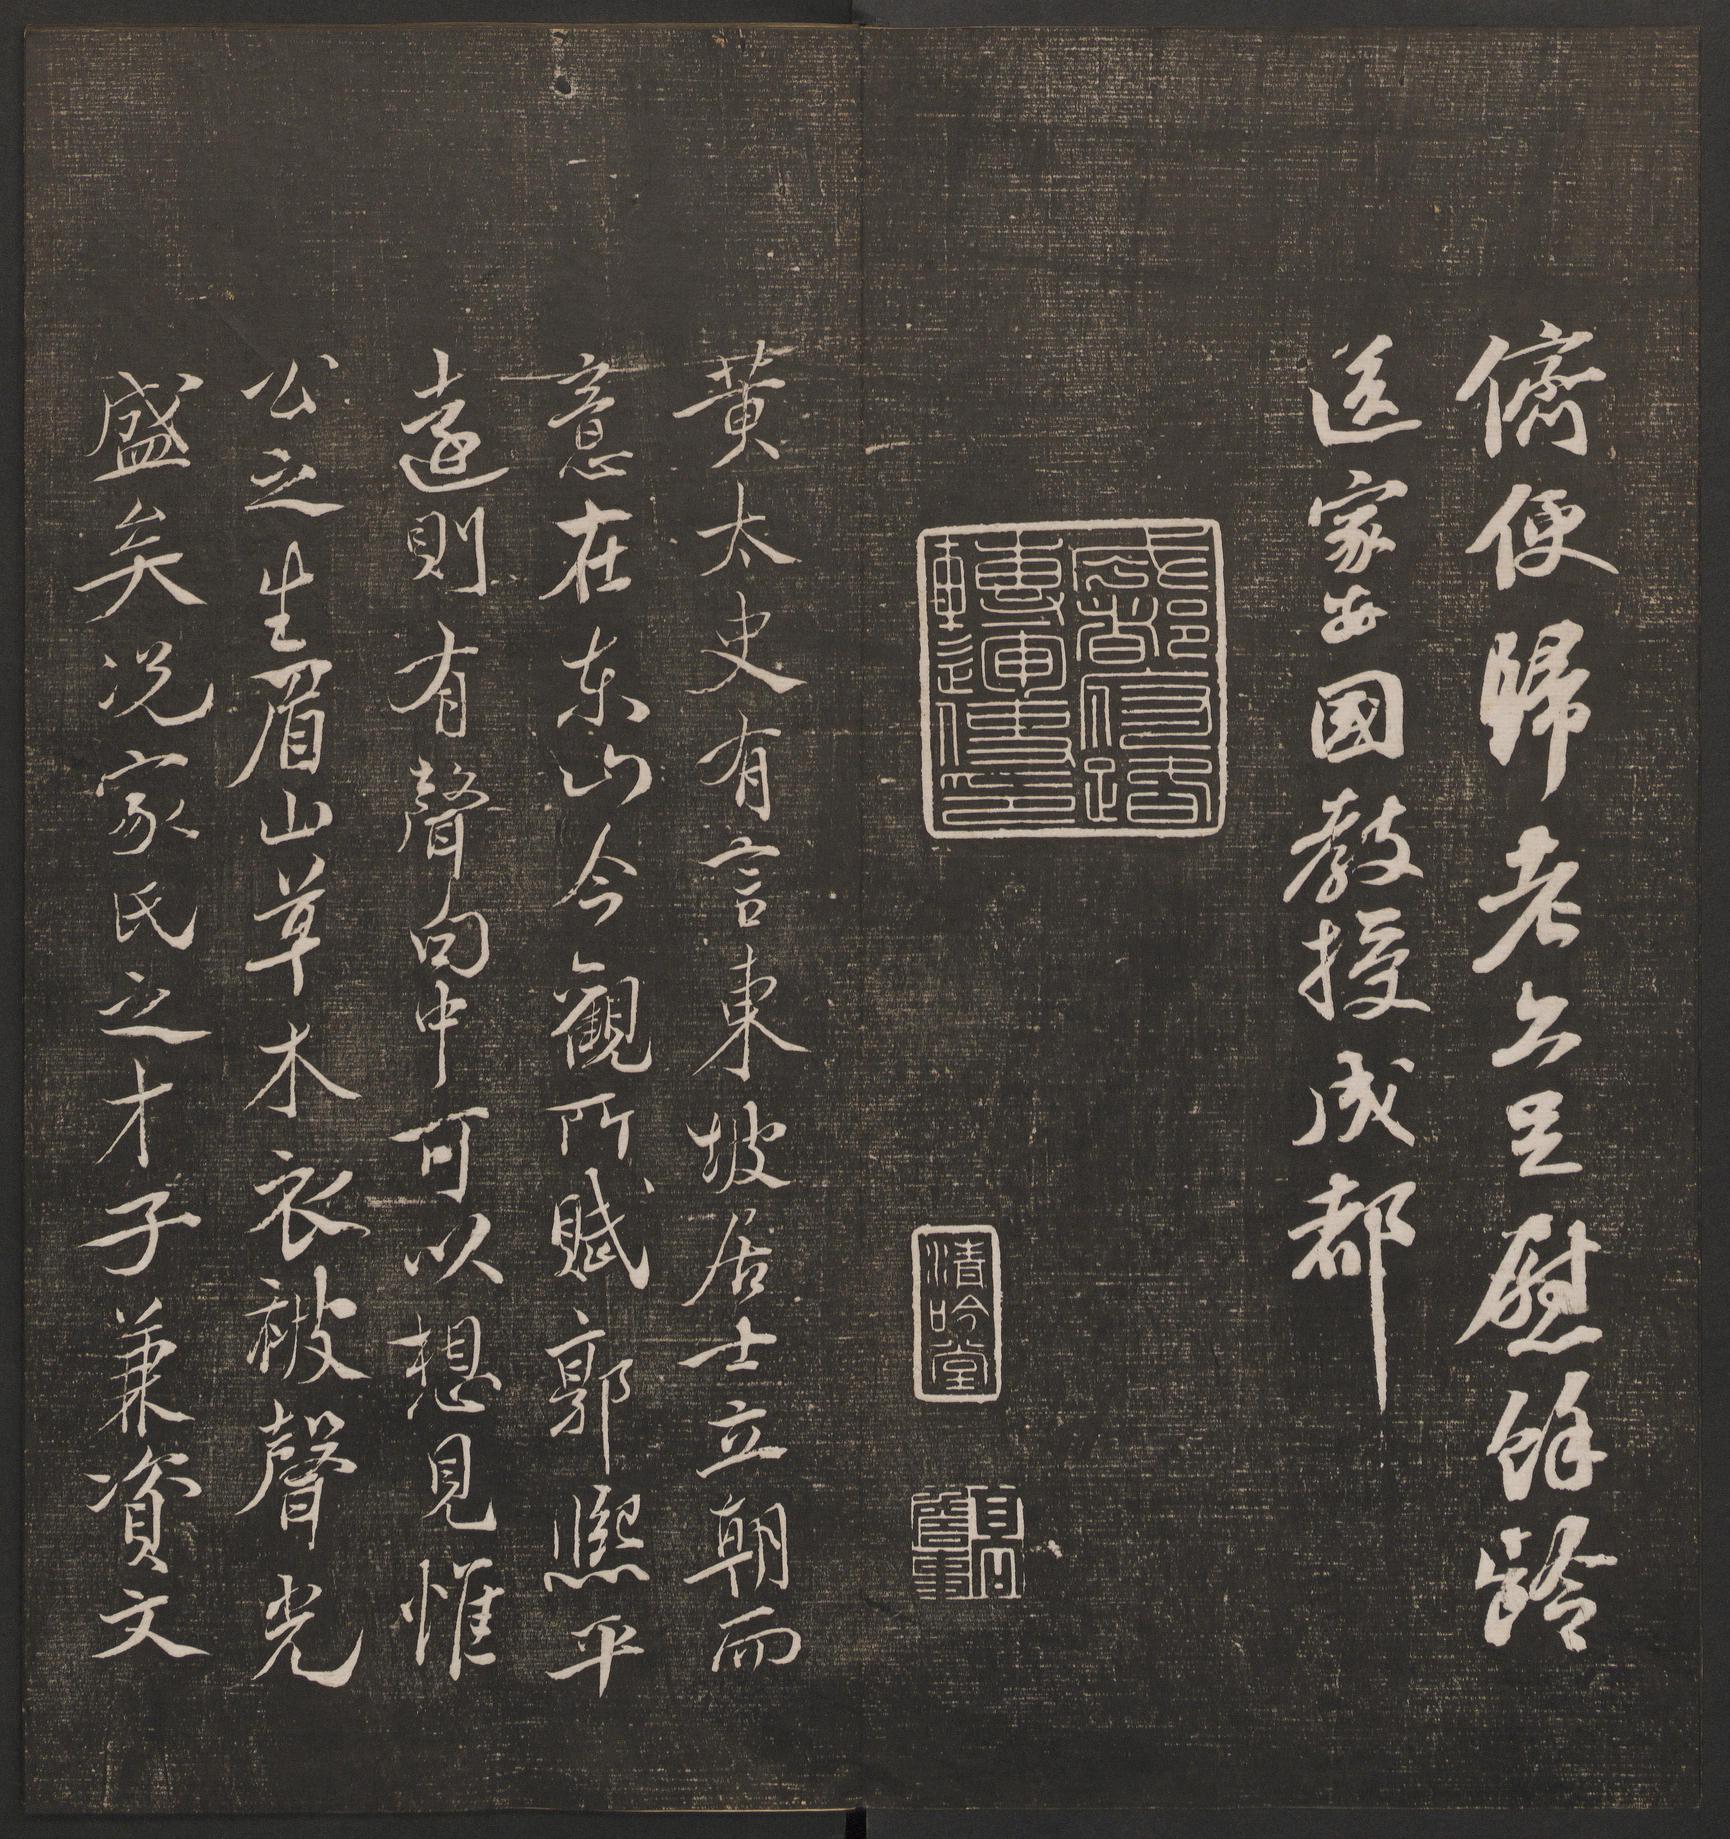 儕便歸老亦足慰餘齡
送家安國教授成都
成都府路轉運使印
清吟堂
黃太史有言東坡居士立朝而
意在東山今觀所賦郭熙平
遠則有聲句中可以想見惟
公之生眉山草木衣被聲光
盛矣況家氏之才子兼資文